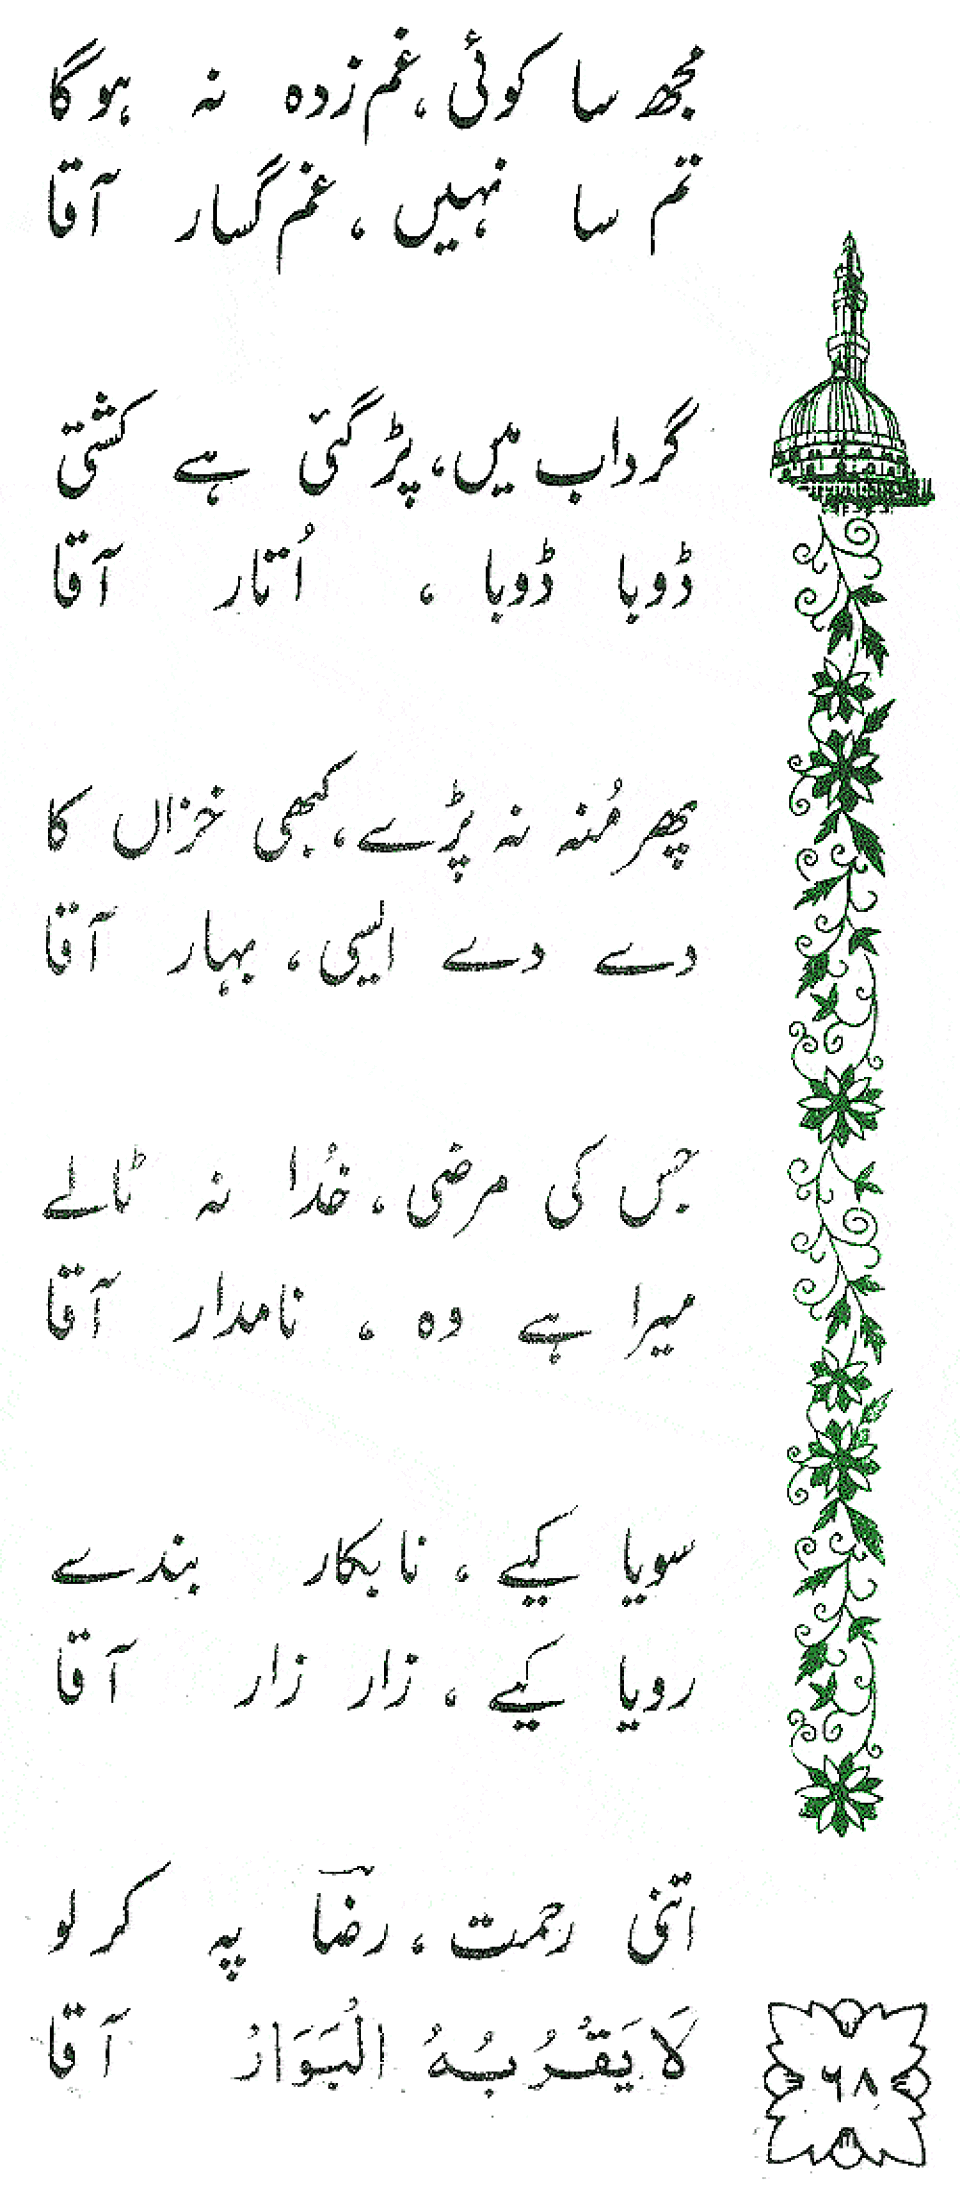 مجھ سا کوئی، غم زدہ نہ ہو گا
تم سا نہیں، غم گسار آقا
گرداب میں، پڑ گئی ہے کشتی
ڈوبا ڈوبا، اُتار آقا
پھر مُنہ نہ پڑے، کبھی خزاں کا
دے دے ایسی، بہار آقا
جس کی مرضی، خُدا نہ ٹالے
میرا ہے وہ، نامدار آقا
سویا کیے، نابکار بندے
رویا کیے، زار زار آقا
اتنی رحمت، رضاؔ پہ کر لو
لَا يَقْرُبُهُ الْبَوَارُ آقا
۶۸